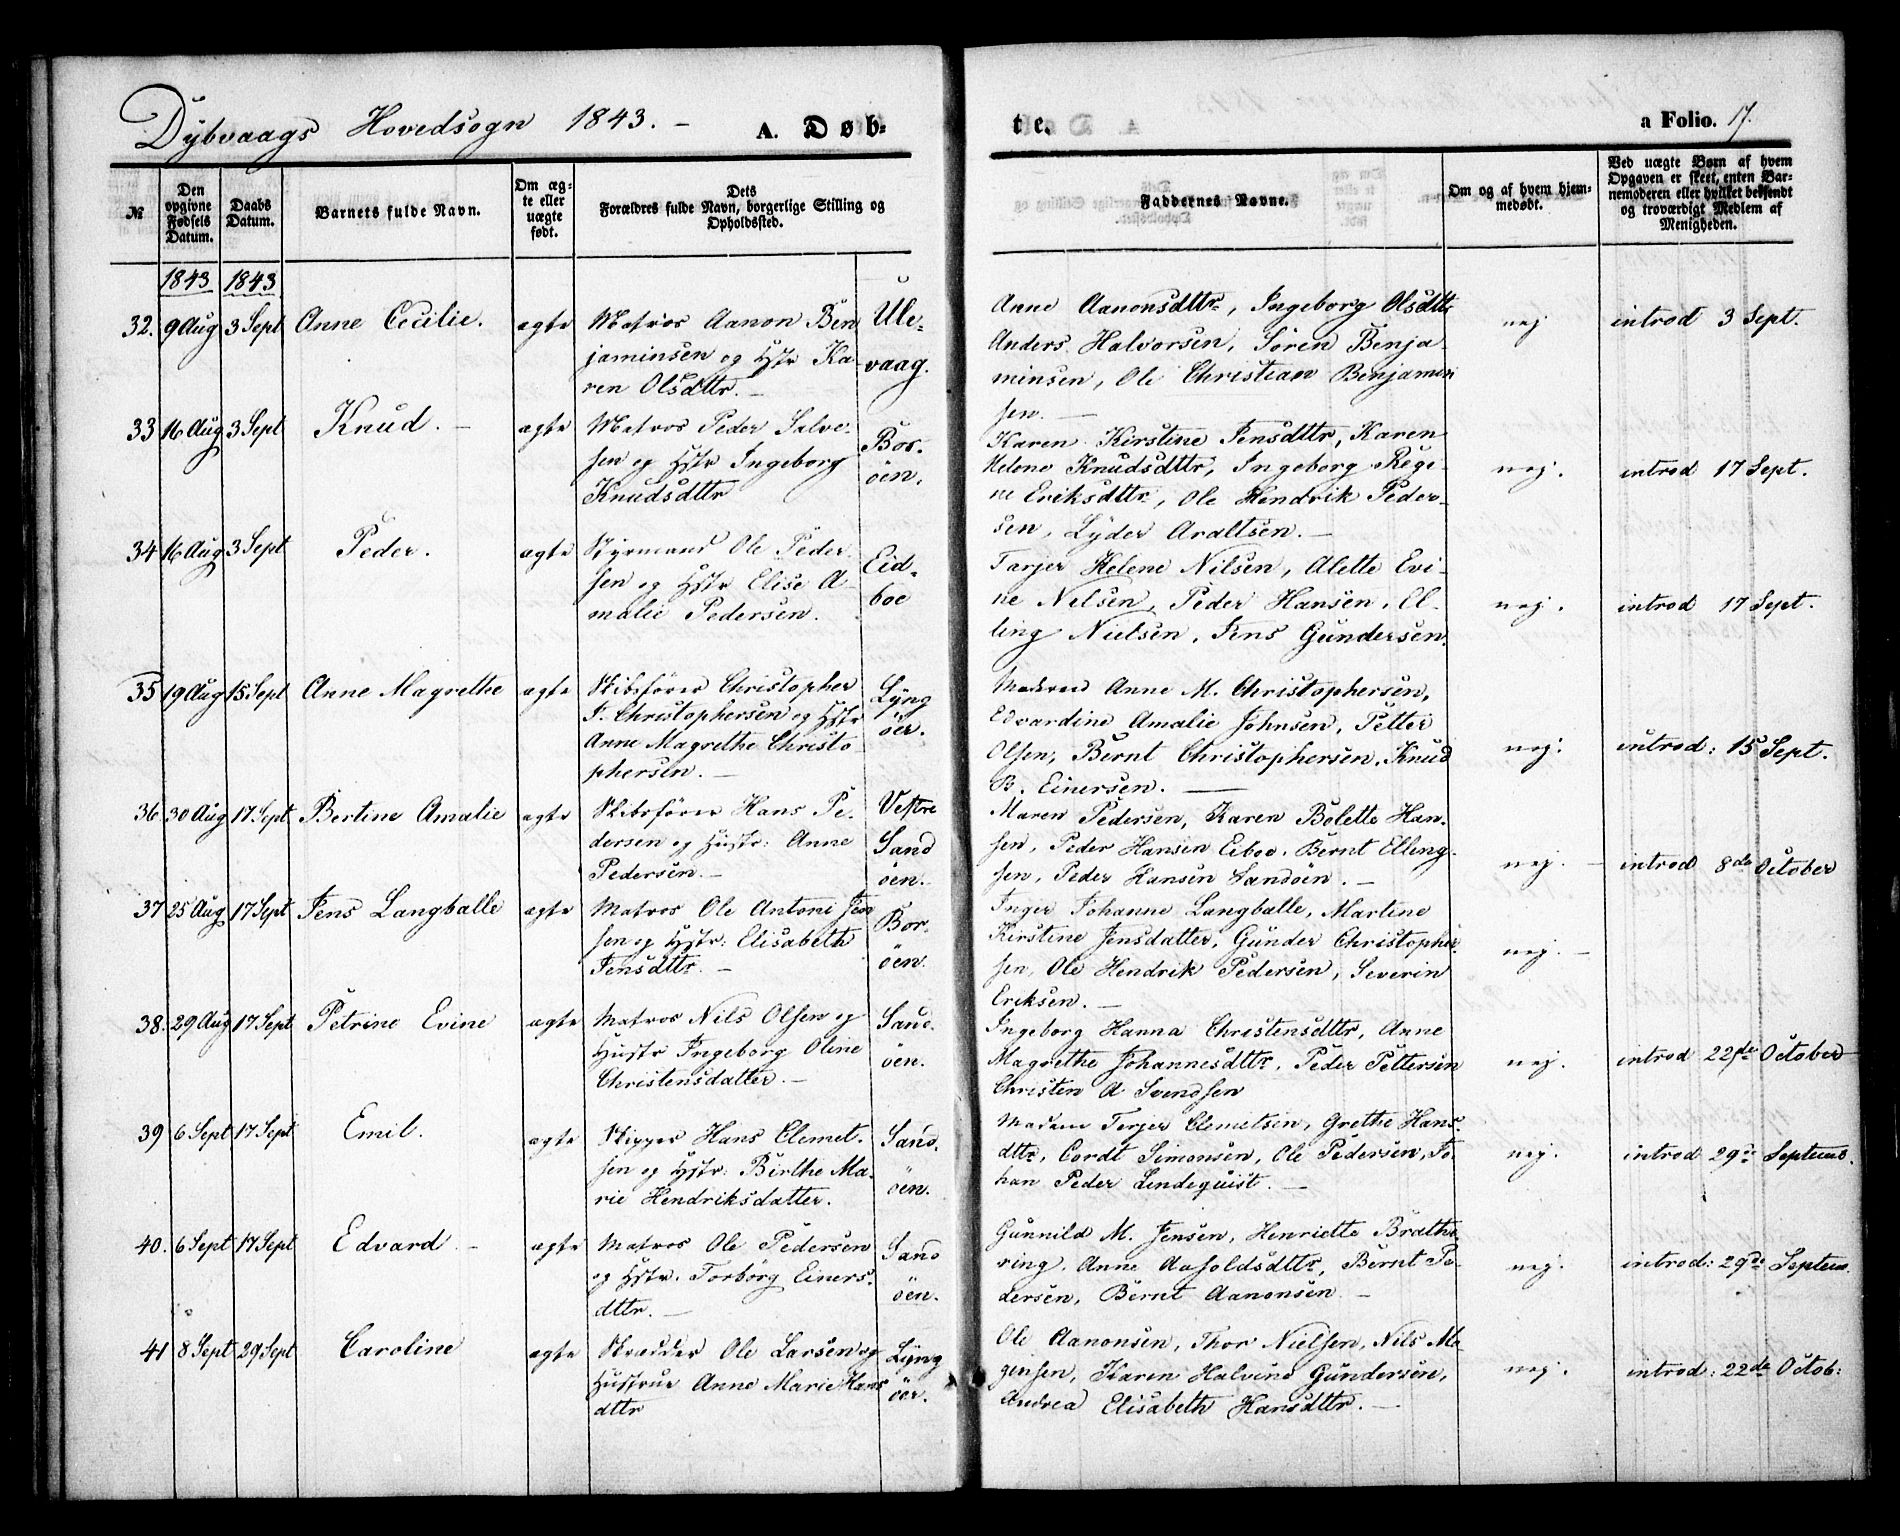 Dybvaags Hovedsogn 1843. – A. Døb-
te. a Folio. 17.
№ Den opgivne Fødsels Datum. Daabs Datum. Barnets fulde Navn. Om ægte eller uægte født. Dets Forældres fulde Navn, borgerlige Stilling og Opholdssted. Faddernes Navne. Om og af hvem hjemmedøbt. Ved uægte Børn af hvem Opgaven er skeet, enten Barnemoderen eller hvilket bekjendt og troværdigt Medlem af Menigheden.
1843 1843
32. 9 Aug 3 Sept Anne Cecilie. ægte Matros Aanon Ben
jaminsen og Hstr Ka
ren Olsdttr. –
Ule-
vaag.
Anne Aanonsdttr, Ingeborg Olsdttr
Anders Halvorsen, Sören Benja-
minsen, Ole Christian Benjamin
sen. –
nej introd 3 Sept.
33 16 Aug 3 Sept Knud. – ægte Matros Peder Salve-
sen og Hstr Ingeborg
Knudsdttr
Bor-
öen.
Karen Kirstine Jensdttr, Karen
Helene Knudsdttr, Ingeborg Regi-
ne Eriksdttr, Ole Hendrik Peder-
sen, Lyder Araltsen. –
nej. introd 17 Sept.
34 16 Aug 3 Sept Peder. ægte Styrmand Ole Peder
sen og Hstr Elise A-
malie Pedersen.
Eid-
boe
Tarjer Helene Nilsen, Alette Evi-
ne Nelsen, Peder Hansen, El-
ling Nielsen, Jens Gundersen.
nej. introd 17 Sept.
35 19 Aug 15 Sept Anne Magrethe ægte Skibsförer Christopher
F. Christophersen og Hstr
Anne Magrethe Christo
phersen. –
Lyng
öer.
Anne M. Christophersen,
Edvardine Amalie Johnsen, Petter
Olsen, Bernt Christophersen, Knud
B. Einersen. –
nej. introd: 15 Sept.
36 30 Aug 17 Sept Bertine Amalie ægte Skibsförer Hans Pe-
dersen og Hustr: Anne
Pedersen. –
Vestre
Sand
öen.
Maren Pedersen, Karen Bolette Han-
sen, Peder Hansen Eiboe, Bernt Elling-
sen, Peder Hansen Sandöen. –
nej. – introd 8de October
37 25 Aug 17 Sept Jens Langballe ægte Matros Ole Antoni Jen
sen og Hstr: Elisabeth
Jensdttr. –
Bor-
öen.
Inger Johanne Langballe, Martine
Kirstine Jensdatter, Gunder Christopher
sen, Ole Hendrik Pedersen, Severin
Eriksen. –
nej. –
38. 29 Aug 17 Sept Petrine Evine ægte Matros Nils Olsen og
Hustr Ingeborg Oline
Christensdatter. –
Sand-
öen.
Ingeborg Hanna Christensdttr, Anne
Magrethe Johannesdttr, Peder Pettersen
Christen A Svendsen
nej. introd 22de October
39 6 Sept 17 Sept Emil. ægte Skipper Hans Clemet-
sen og Hstr: Birthe Ma-
rie Hendriksdatter.
Sand-
öen.
Madam Terjer Clemetsen, Grethe Hans-
dttr, Cordt Simonsen, Ole Pedersen, Jo-
han Peder Lindequist. –
nej. introd 29de Septemb.
40. 6 Sept 17 Sept Edvard. – ægte Matros Ole Pedersen
og Hstr. Torborg Einers-
dttr. –
Sand
öen.
Gunnild M. Jensen, Henriette Brathe-
ring, Anne Aasoldsdttr, Bernt Pe-
dersen, Bernt Aanonsen. –
nej. introd: 29de Septem.
41 8 Sept 29 Sept Caroline ægte Skrædder Ole Larsen og
Hustrue Anne Marie Hans
dttr
Lyng
öer.
Ole Aanonsen, Thor Nielsen, Nils Mo
gensen, Karen Halvine Gundersen,
Andrea Elisabeth Hansdttr. –
nej. introd: 22de Octob: